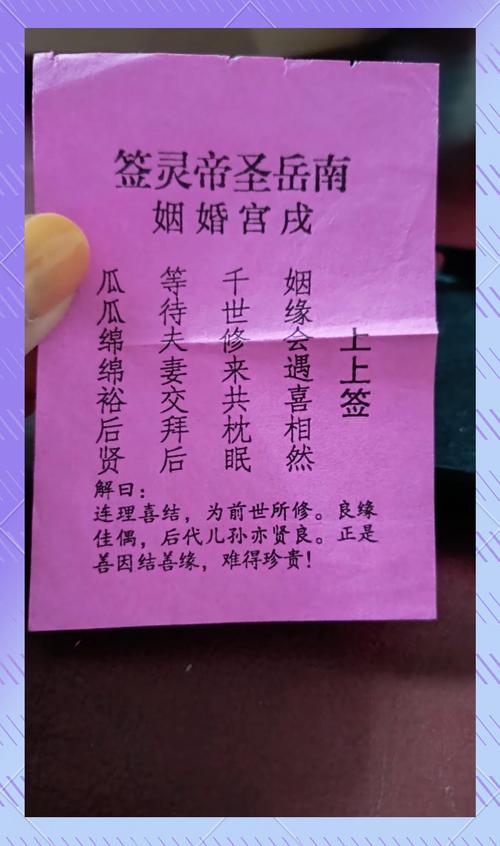 签灵帝圣岳南
姻婚宫戌
上上签
姻缘会遇喜相然
千世修来共枕眠
等待夫妻交拜后
瓜瓜绵绵裕后贤
解曰：
连理喜结，为前世所修。良缘
佳偶，后代儿孙亦贤良。正是
善因结善缘，难得珍贵！